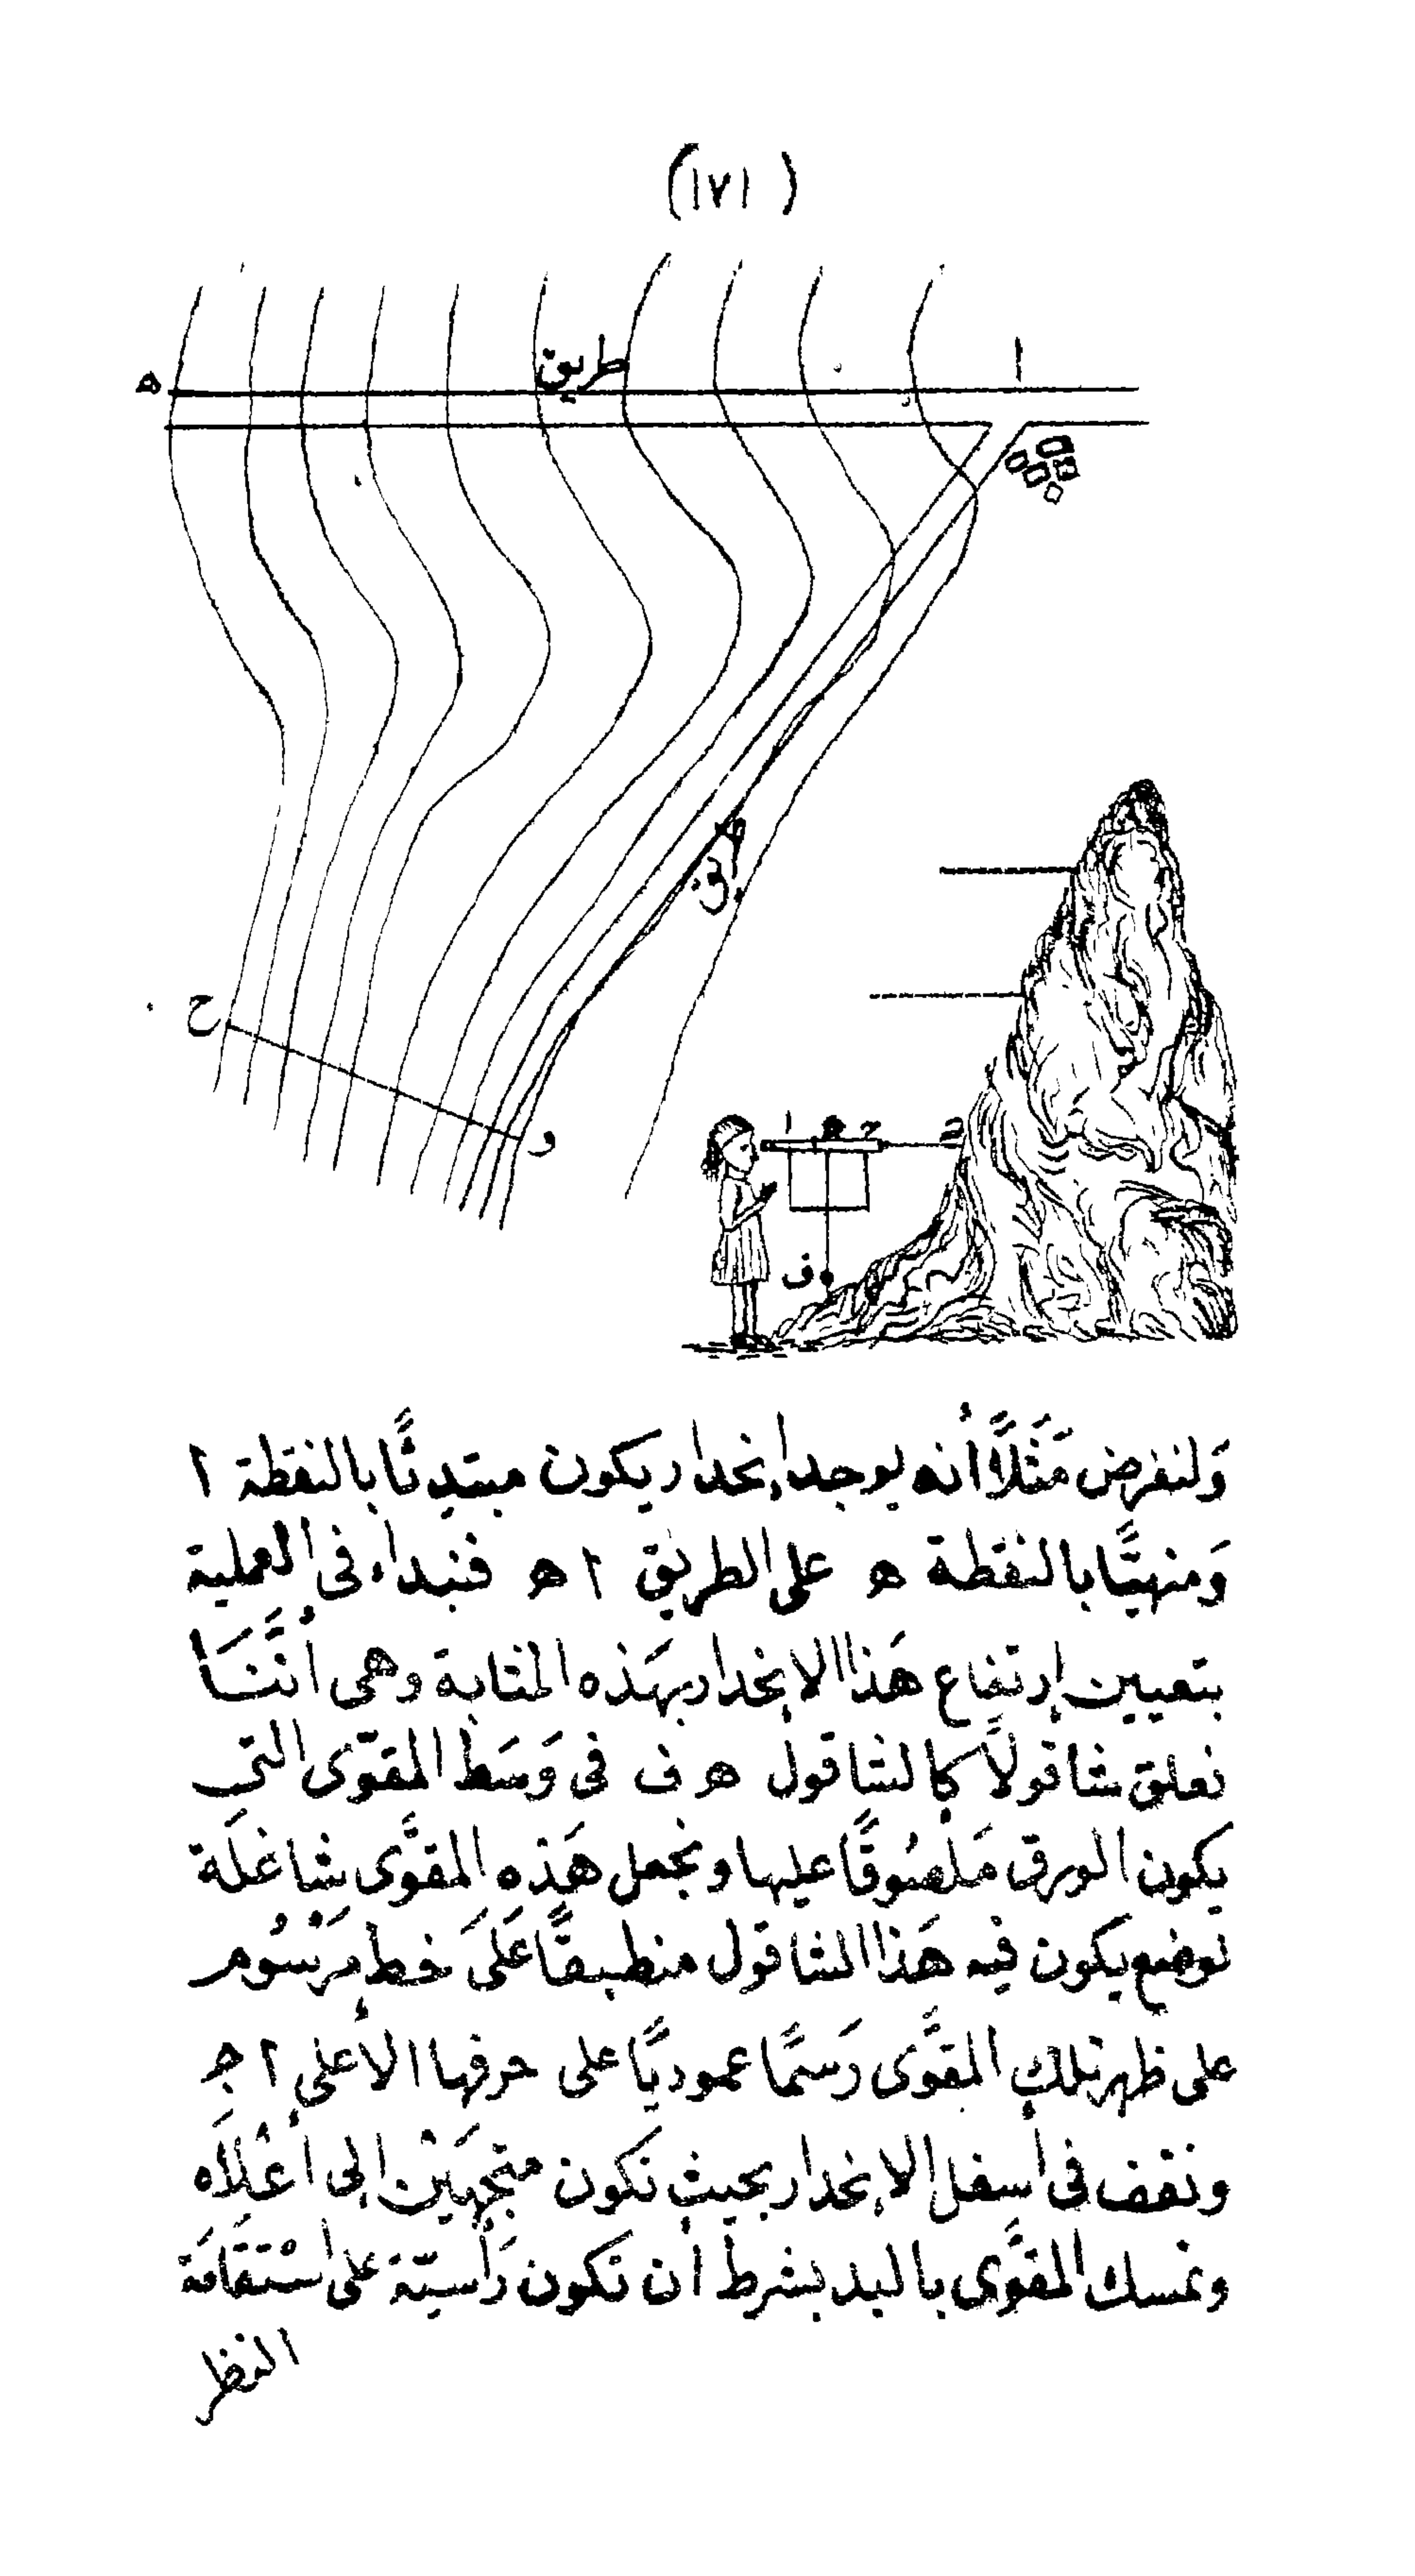 (١٧١)
ا
طريق
ه
طريق
ح
و
ا ه ج
ف
وَلنفرض مَثَلاً أنه يوجد إنحدار يكون مبتدِئًا بالنقطة ا
وَمنهيًّا بالنقطة ه على الطريق ا ه فنبداء فى العملية
بتعيين إرتفاع هَذا الإنحدار بهَذه المثابة وهى أنَّنَا
نعلق شاقولاً كالشاقول ه ف فى وَسَط المقوّى التى
يكون الورق مَلصُوقًا عليها ونجعل هَذه المقوَّى شاغلَة
لوضع يكون فيه هَذا الشاقول منطبقًا عَلَى خط مَرْسُوم
على ظهر تلك المقوَّى رَسمًا عموديًّا على حرفها الأعلى ا ج
ونقف فى أسفل الإنحدار بحيث نكون متجهَيْن إلى أعْلاَه
ونمسك المقوَّى باليد بشرط أن تكون رَأسيّة على اسْتقَامَة
النظر